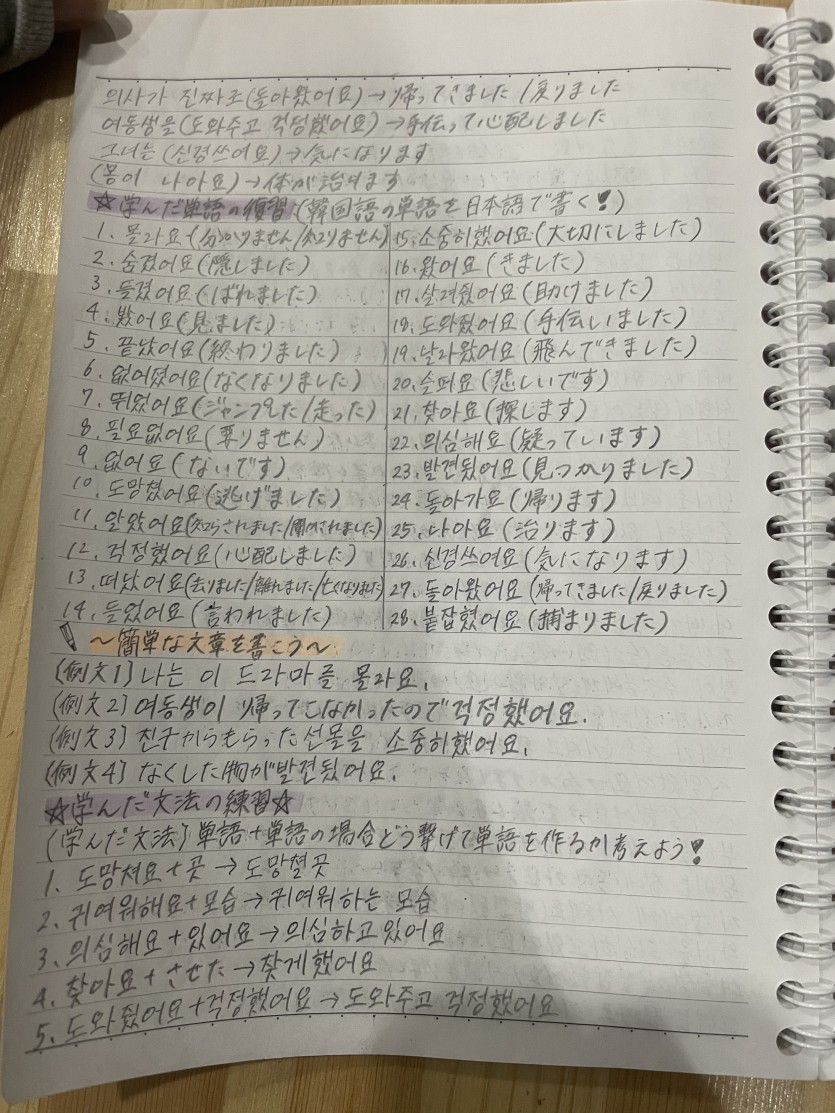 의사가 진짜로(돌아왔어요)→帰ってきました/戻りました
여동생을(도와주고 걱정했어요)→手伝って心配しました
그녀는(신경쓰여요)→気になります
(몸이 나아요)→体が治ります
☆学んだ単語の復習(韓国語の単語を日本語で書く!)
1.몰라요(分かりません/知りません)
2.숨겼어요(隠しました)
3.들겼어요(ばれました)
4.봤어요(見ました)
5.끝났어요(終わりました)
6.없어졌어요(なくなりました)
7.뛰었어요(ジャンプした/走った)
8.필요없어요(要りません)
9.없어요(ないです)
10.도망쳤어요(逃げました)
11.알았어요(知らされました/聞かされました)
12.걱정했어요(心配しました)
13.떠났어요(去りました/離れました/亡くなりました)
14.들었어요(言われました)
15.소중히했어요(大切にしました)
16.왔어요(きました)
17.살려줬어요(助けました)
18.도와줬어요(手伝いました)
19.날라왔어요(飛んできました)
20.슬퍼요(悲しいです)
21.찾아요(探します)
22.의심해요(疑っています)
23.발견됐어요(見つかりました)
24.돌아가요(帰ります)
25.나아요(治ります)
26.신경쓰여요(気になります)
27.돌아왔어요(帰ってきました/戻りました)
28.붙잡혔어요(捕まりました)
～簡単な文章を書こう～
(例文1)나는 이 드라마를 몰라요.
(例文2)여동생이 帰ってこなかったので걱정했어요.
(例文3)친구からもらった선물을 소중히했어요.
(例文4)なくした物が발견됬어요.
☆学んだ文法の練習☆
(学んだ文法)単語+単語の場合どう繋げて単語を作るか考えよう!
1.도망쳐요+곳→도망칠곳
2.귀여워해요+모습→귀여워하는 모습
3.의심해요+있어요→의심하고있어요
4.찾아요+させた→찾게했어요
5.도와줬어요+걱정했어요→도와주고 걱정했어요